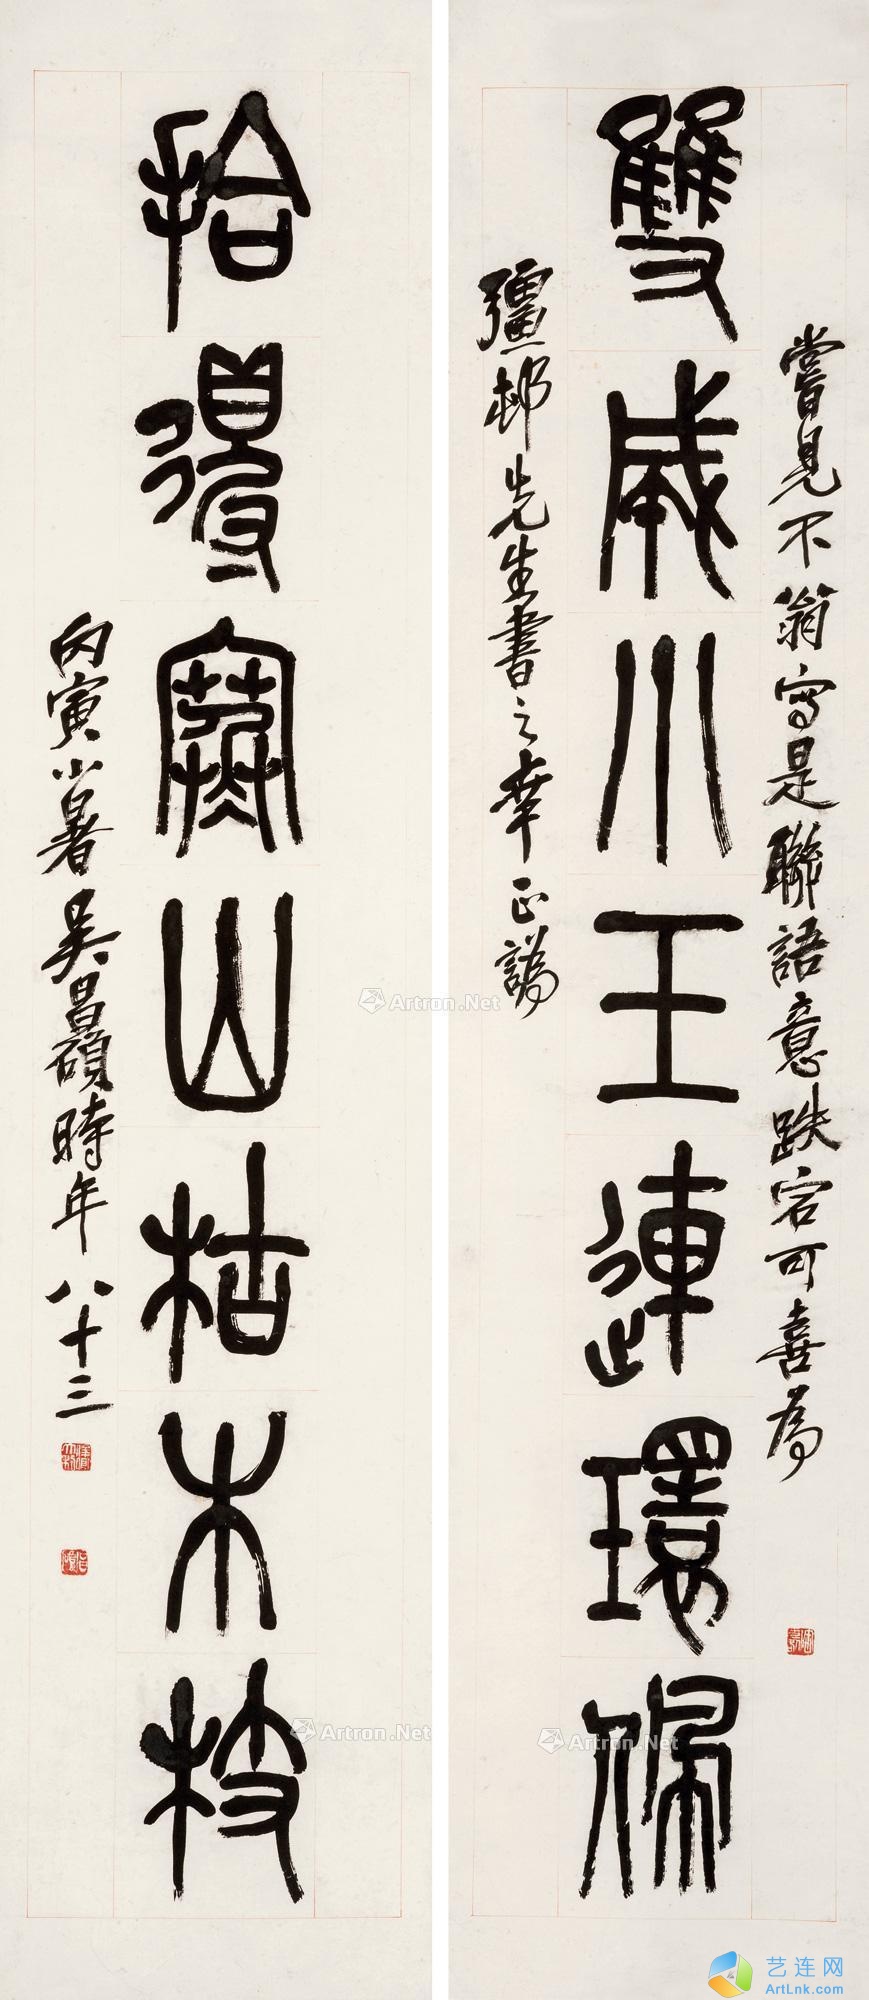 嘗見不翁寫是聯語意跌宕可喜為
雙成小玉連環佩
彊邨先生書之幸正譌
拾得寒山枯木枝
丙寅小暑吳昌碩時年八十三
Artron.Net
Artron.Net
Artron.Net
艺连网
ArtLnk.com